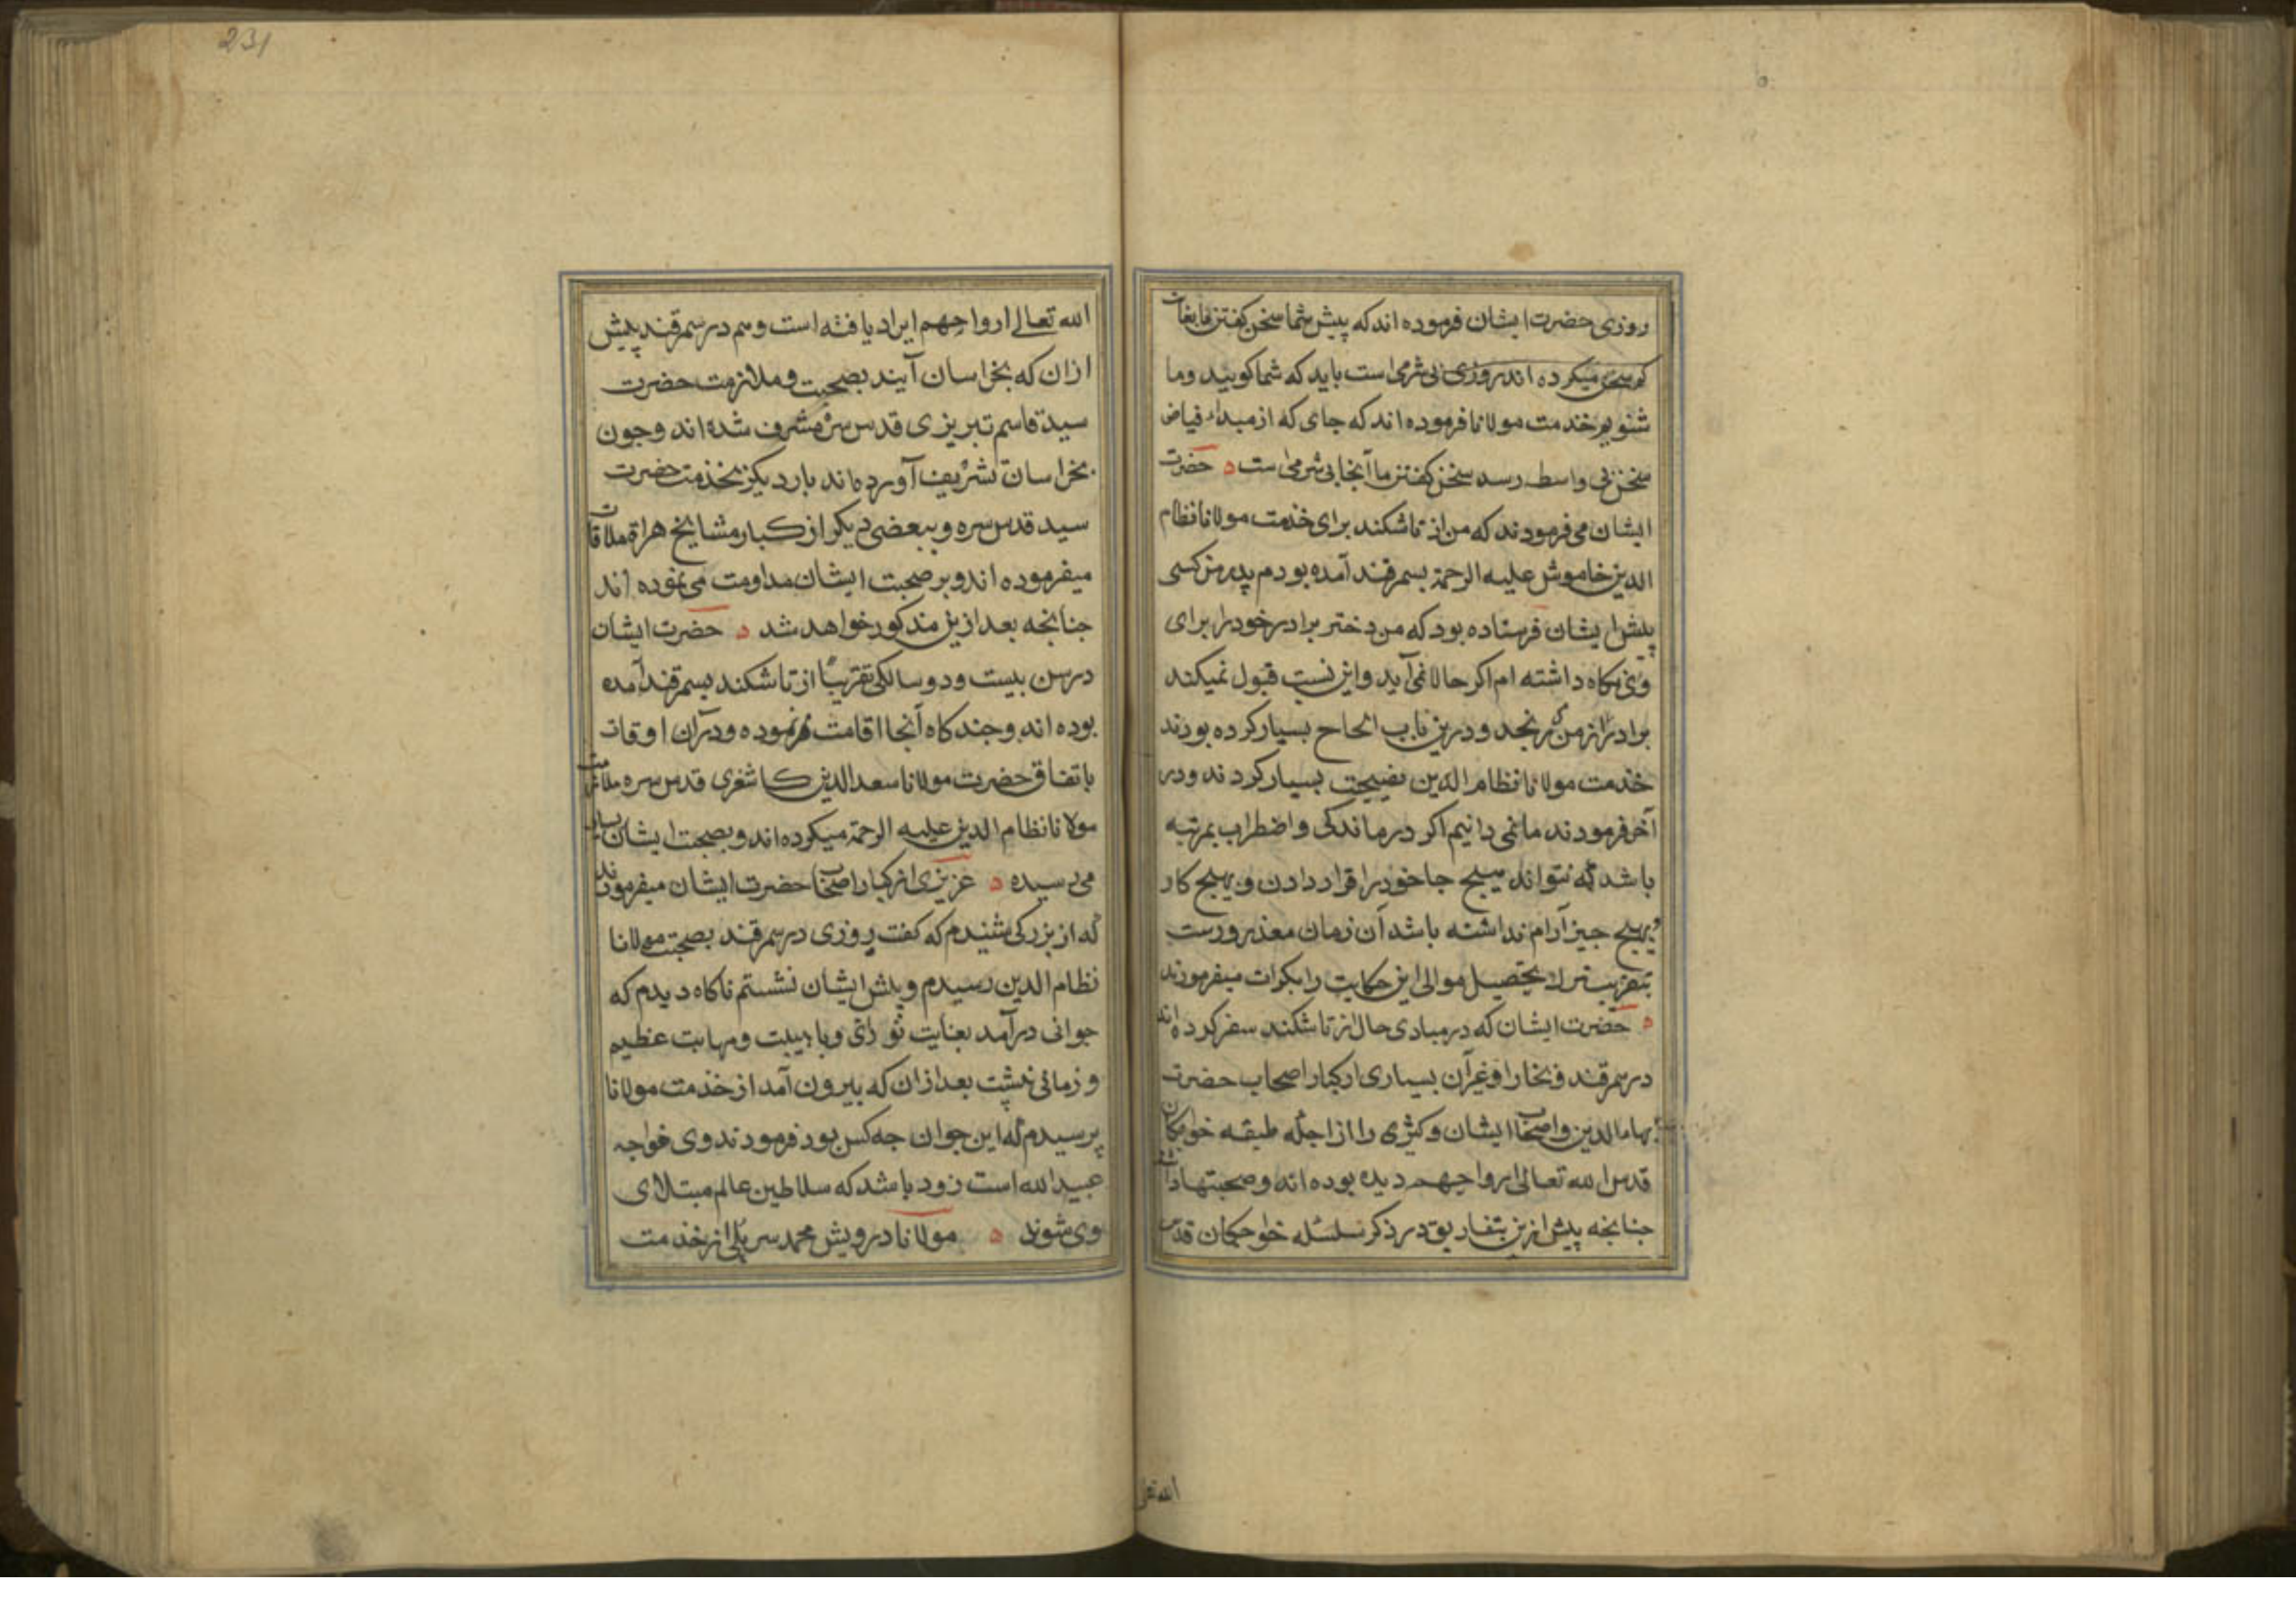 روزی حضرت ایشان فرموده اند که پیش شما سخن کفتن ما بغایت
کم سخن میکرده اند روزی بی شرمی است باید که شما کویید وما
شنویم خدمت مولانا فرموده اند که جای که از مبداء فیاض
سخن بی واسطه رسد سخن کفتن ما آنجا بی شرمی است ه حضرت
ایشان می فرمودند که من از تاشکند برای خدمت مولانا نظام
الدین خاموش علیه الرحمة بسمرقند آمده بودم پدر من کسی
پیش ایشان فرستاده بود که من دختر برادر خود را برای
وی نکاه داشته ام اکر حالا نمی آید واین نسبت قبول نمیکند
برادر از من می رنجد ودرین باب الحاح بسیار کرده بودند
خدمت مولانا نظام الدین نصیحت بسیار کردند ودر
آخر فرمودند ما نمی دانیم اکر درماندکی واضطراب بمرتبه
باشد که نتواند بهیچ جا خود را قرار دادن وبهیچ کار
وبهیچ جیز آرام نداشته باشد آن زمان معذورست
بتقریب ترک تحصیل موالی این حکایت را بکرات میفرمودند
ه حضرت ایشان که در مبادی حال از تاشکند سفر کرده اند
در سمرقند وبخارا وغیر آن بسیاری از کبار اصحاب حضرت
بهاء الدین واصحاب ایشان وکثری را از اجله طبقه خواجکان
قدس الله تعالی ارواحهم دیده بوده اند وصحبتها داشته
جنانجه پیش ازین بتفاریق در ذکر سلسله خواجکان قدس
الله تعالی
231
الله تعالی ارواحهم ایراد یافته است وهم در سمرقند پیش
ازان که بخراسان آیند بصحبت وملازمت حضرت
سید قاسم تبریزی قدس سره مشرف شده اند وجون
بخراسان تشریف آورده اند بار دیکر بخدمت حضرت
سید قدس سره وببعضی دیکر از کبار مشایخ هراة ملاقات
میفرموده اند وبر صحبت ایشان مداومت می نموده اند
جنانجه بعد ازین مذکور خواهد شد ه حضرت ایشان
در سن بیست ودو سالکی تقریبًا از تاشکند بسمرقند آمده
بوده اند وجند کاه آنجا اقامت فرموده ودر آن اوقات
باتفاق حضرت مولانا سعد الدین کاشغری قدس سره ملازمت
مولانا نظام الدین علیه الرحمة میکرده اند وبصحبت ایشان بسیار
می رسیده ه عزیزی از کبار اصحاب حضرت ایشان میفرمودند
که از بزرکی شنیدم که کفت روزی در سمرقند بصحبت مولانا
نظام الدین رسیدم وپیش ایشان نشستم ناکاه دیدم که
جوانی درآمد بغایت نورانی وبا هیبت ومهابت عظیم
وزمانی نشست بعد ازان که بیرون آمد از خدمت مولانا
پرسیدم که این جوان جه کس بود فرمودند وی خواجه
عبید الله است زود باشد که سلاطین عالم مبتلای
وی شوند ه مولانا درویش محمد سرپلی از خدمت